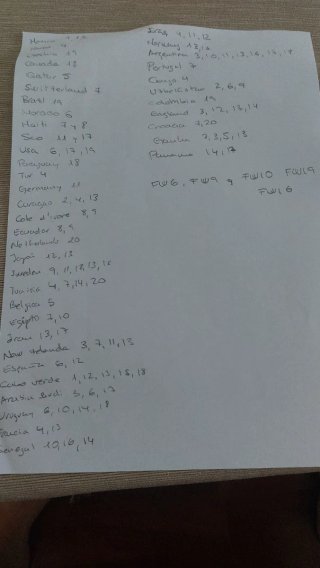 Canada 13
Qatar 5
Switzerland 7
Brasil 19
Haiti 7 y 8
Sco 11 y 17
Usa 6, 17, 19
Paraguay 18
Tur 4
Germany 11
Curaçao 2, 4, 18
Cote d'ivore 8, 9
Ecuador 8, 9
Netherlands 20
Japon 12, 13
Sweden 9, 11, 18, 13, 16
Tunisia 4, 7, 14, 20
Belgica 5
Egipto 7, 10
Iran 13, 17
New Zelanda 3, 7, 11, 13
España 6, 12
Cabo verde 1, 12, 13, 15, 18
Arabia Sudi 5, 6, 17
Uruguay 6, 10, 14, 18
Francia 4, 13
Senegal 10, 16, 14
Iraq 4, 11, 12
Norway 13, 16
Argentina 3, 10, 11, 13, 16, 15, 17
Portugal 7
Congo 4
Uzbekistan 2, 6, 9
Colombia 19
England 3, 12, 13, 14
Croacia 7, 20
Ghana 2, 3, 5, 13
Panama 14, 17
FW6, FW9 y FW10 FW19
FW16